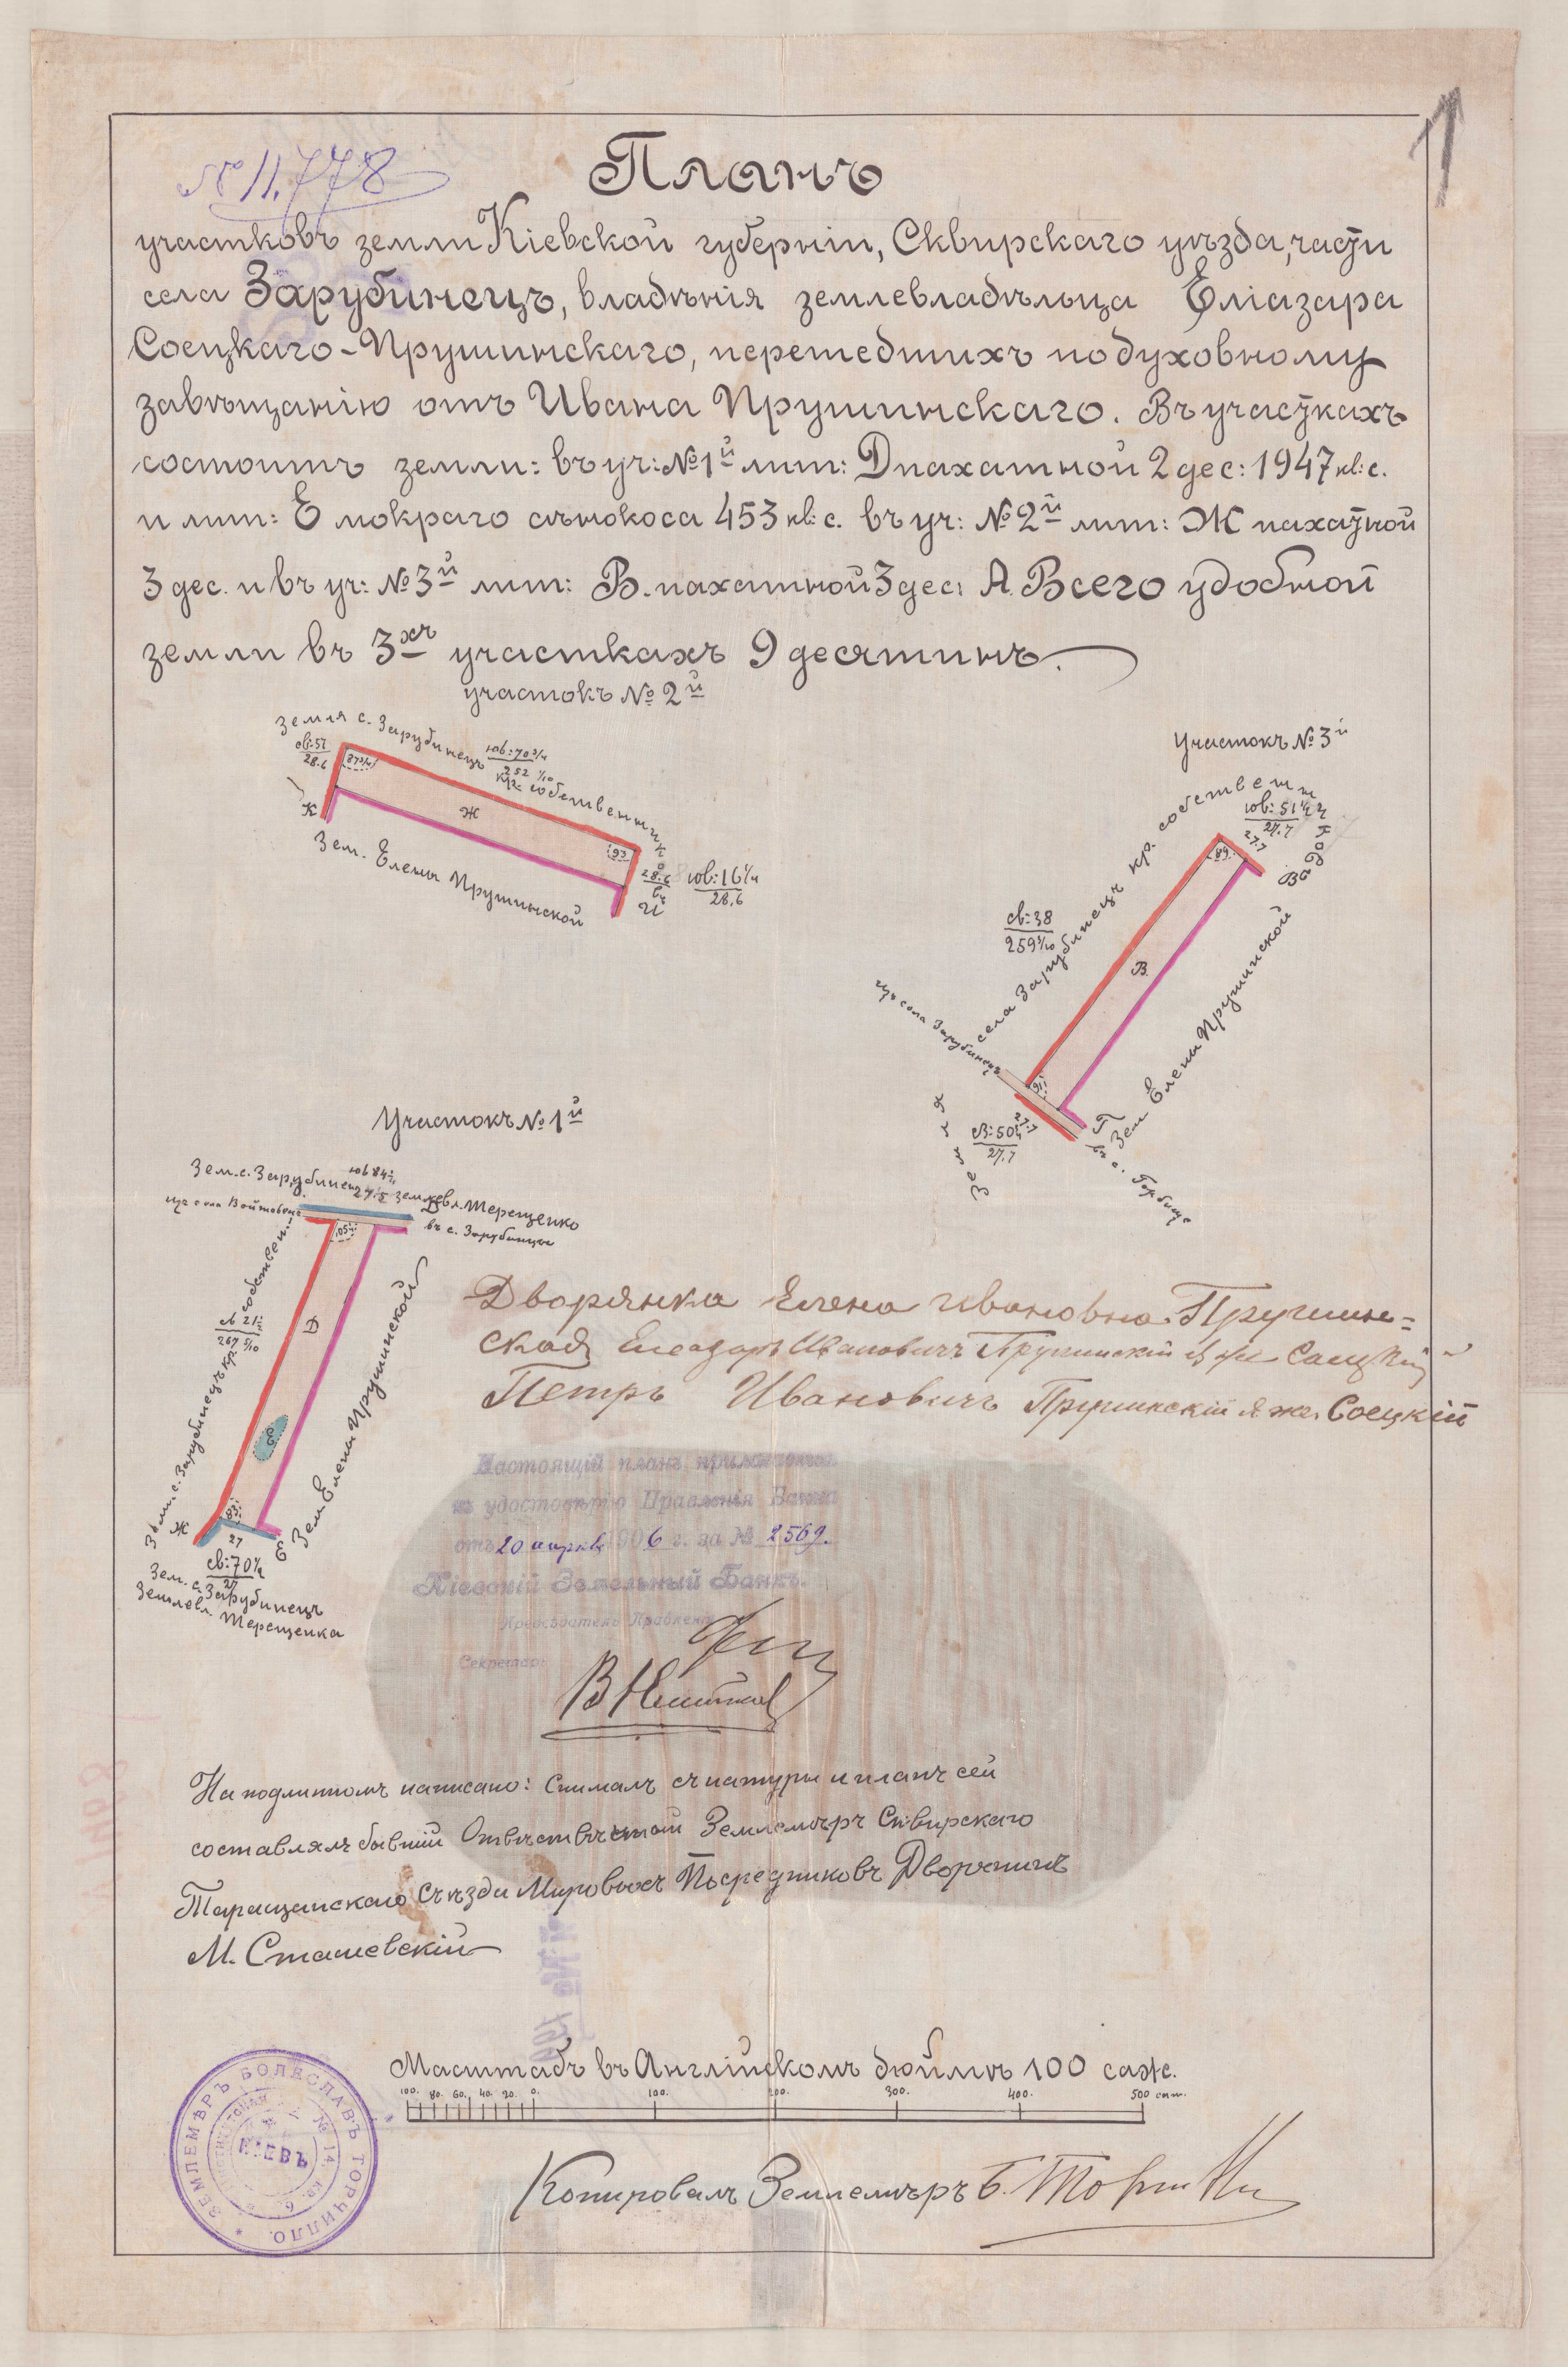 1
№ 11.778
Планъ
участковъ земли Кіевской губерніи, Сквирскаго уѣзда, части
села Зарубинецъ, владѣнія землевладѣльца Еліазара
Соецкаго-Прушинскаго, перешедшихъ по духовному
завѣщанію отъ Ивана Прушинскаго. Въ участкахъ
состоитъ земли: въ уч: № 1й лит: D пахатной 2 дес: 1947 кв: с.
и лит: Е мокраго сѣнокоса 453 кв: с. въ уч: № 2й лит: Ж пахатной
3 дес. и въ уч: № 3й лит: В. пахатной 3 дес: А Всего удобной
земли въ 3хъ участкахъ 9 десятинъ.
участокъ № 2й
Земля с. Зарубинецъ кр: собственник
св: 51
28.6
87 3/4
юв: 70 3/4
252 1/10
Ж
93
К
И
28.6
юв: 16 1/4
28.6
Зем. Елены Прушинской
Участокъ № 3й
Земля села Зарубинецъ кр. собственниковъ
юв: 51 1/2
27.7
27.7
89
В
св: 38
259 3/10
В.
изъ села Зарубинецъ
91
27.7
27.7
Г
въ с. Горбице
Зем Елены Прушинской
Участокъ № 1й
Зем. с. Зарубинец землевл. Терещенко
юв 84
изъ села Войтовецъ
въ с. Зарубинцы
105
D
267 5/10
Зем. с. Зарубинецъ кр. собствен.
Зем Елены Прушинской
83
Ж
27
Е
св: 70 1/2
27
Зем. с. Зарубинецъ
Землевл. Терещенка
Дворянка Елена Ивановна Прушин=
ская Елеазаръ Ивановичъ Прушинскій Соецкій
Петръ Ивановичъ Прушинскій я же Соецкій
Настоящій планъ приложенъ
къ удостовѣрію Правленія Банка
отъ 20 апрѣля 1906 г. за № 2569.
Кіевскій Земельный Банкъ.
Предсѣдатель Правленія
Секретарь
На подлинномъ написано: Снималъ съ натуры и планъ сей
составлялъ бывшій Землемѣръ Сквирскаго
Таращанскаго Съѣзда Мировыхъ Посредниковъ Дворянинъ
М. Сташевскій
Масштабъ въ Англійскомъ дюймѣ 100 саж.
100. 80. 60. 40. 20. 0. 100. 200. 300. 400. 500 саж.
ЗЕМЛЕМѢРЪ БОЛЕСЛАВЪ ТОРЧИЛЛО.
№ 14. кв 6.
КІЕВЪ
Копировалъ Землемѣръ Б.